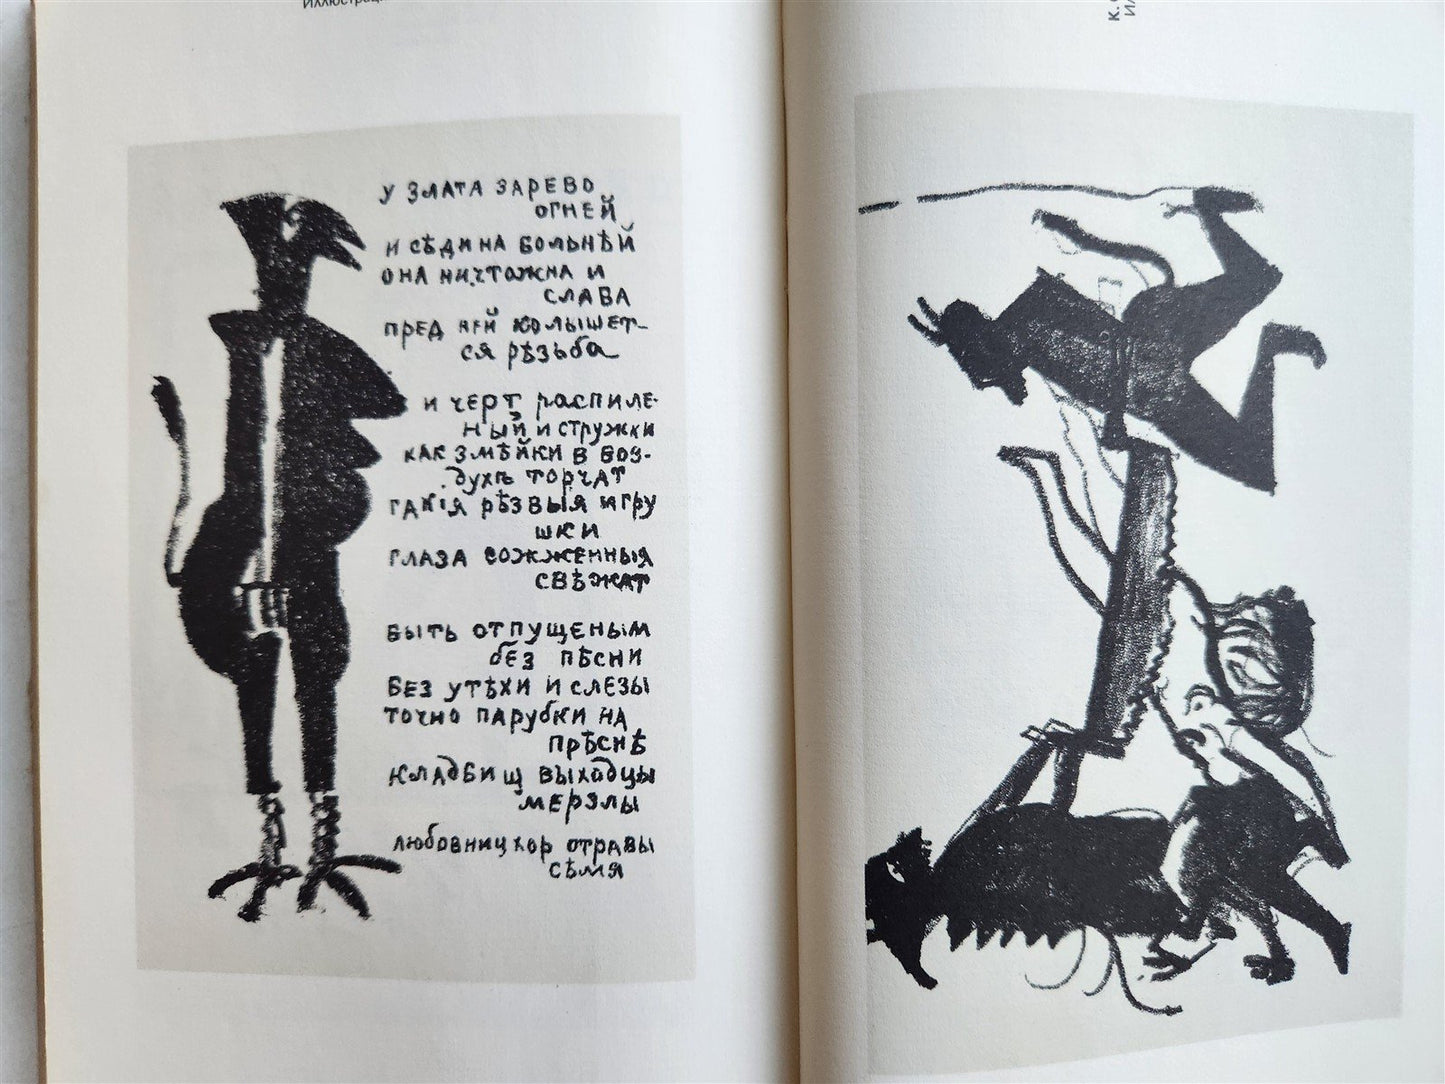 Иллюстрац
К.
У ЗЛАТА ЗАРЕВО
ОГНЕЙ
И СѢДИНА БОЛЬНѢЙ
ОНА НИЧТОЖНА И
СЛАВА
ПРЕД НЕЙ КОЛЫШЕТ-
СЯ РѢЗЬБА
И ЧЕРТ РАСПИЛЕ-
НЫЙ И СТРУЖКИ
КАК ЗМѢЙКИ В ВОЗ-
ДУХѢ ТОРЧАТ
ТАКІЯ РѢЗВЫЯ ИГРУ
ШКИ
ГЛАЗА СОЖЖЕННЫЯ
СВѢЖАТ
БЫТЬ ОТПУЩЕНЫМ
БЕЗ ПѢСНИ
БЕЗ УТѢХИ И СЛЕЗЫ
ТОЧНО ПАРУБКИ НА
ПРѢСНѢ
КЛАДБИЩ ВЫХОДЦЫ
МЕРЗЛЫ
ЛЮБОВНИЦ ХОР ОТРАВЫ
СѢМЯ